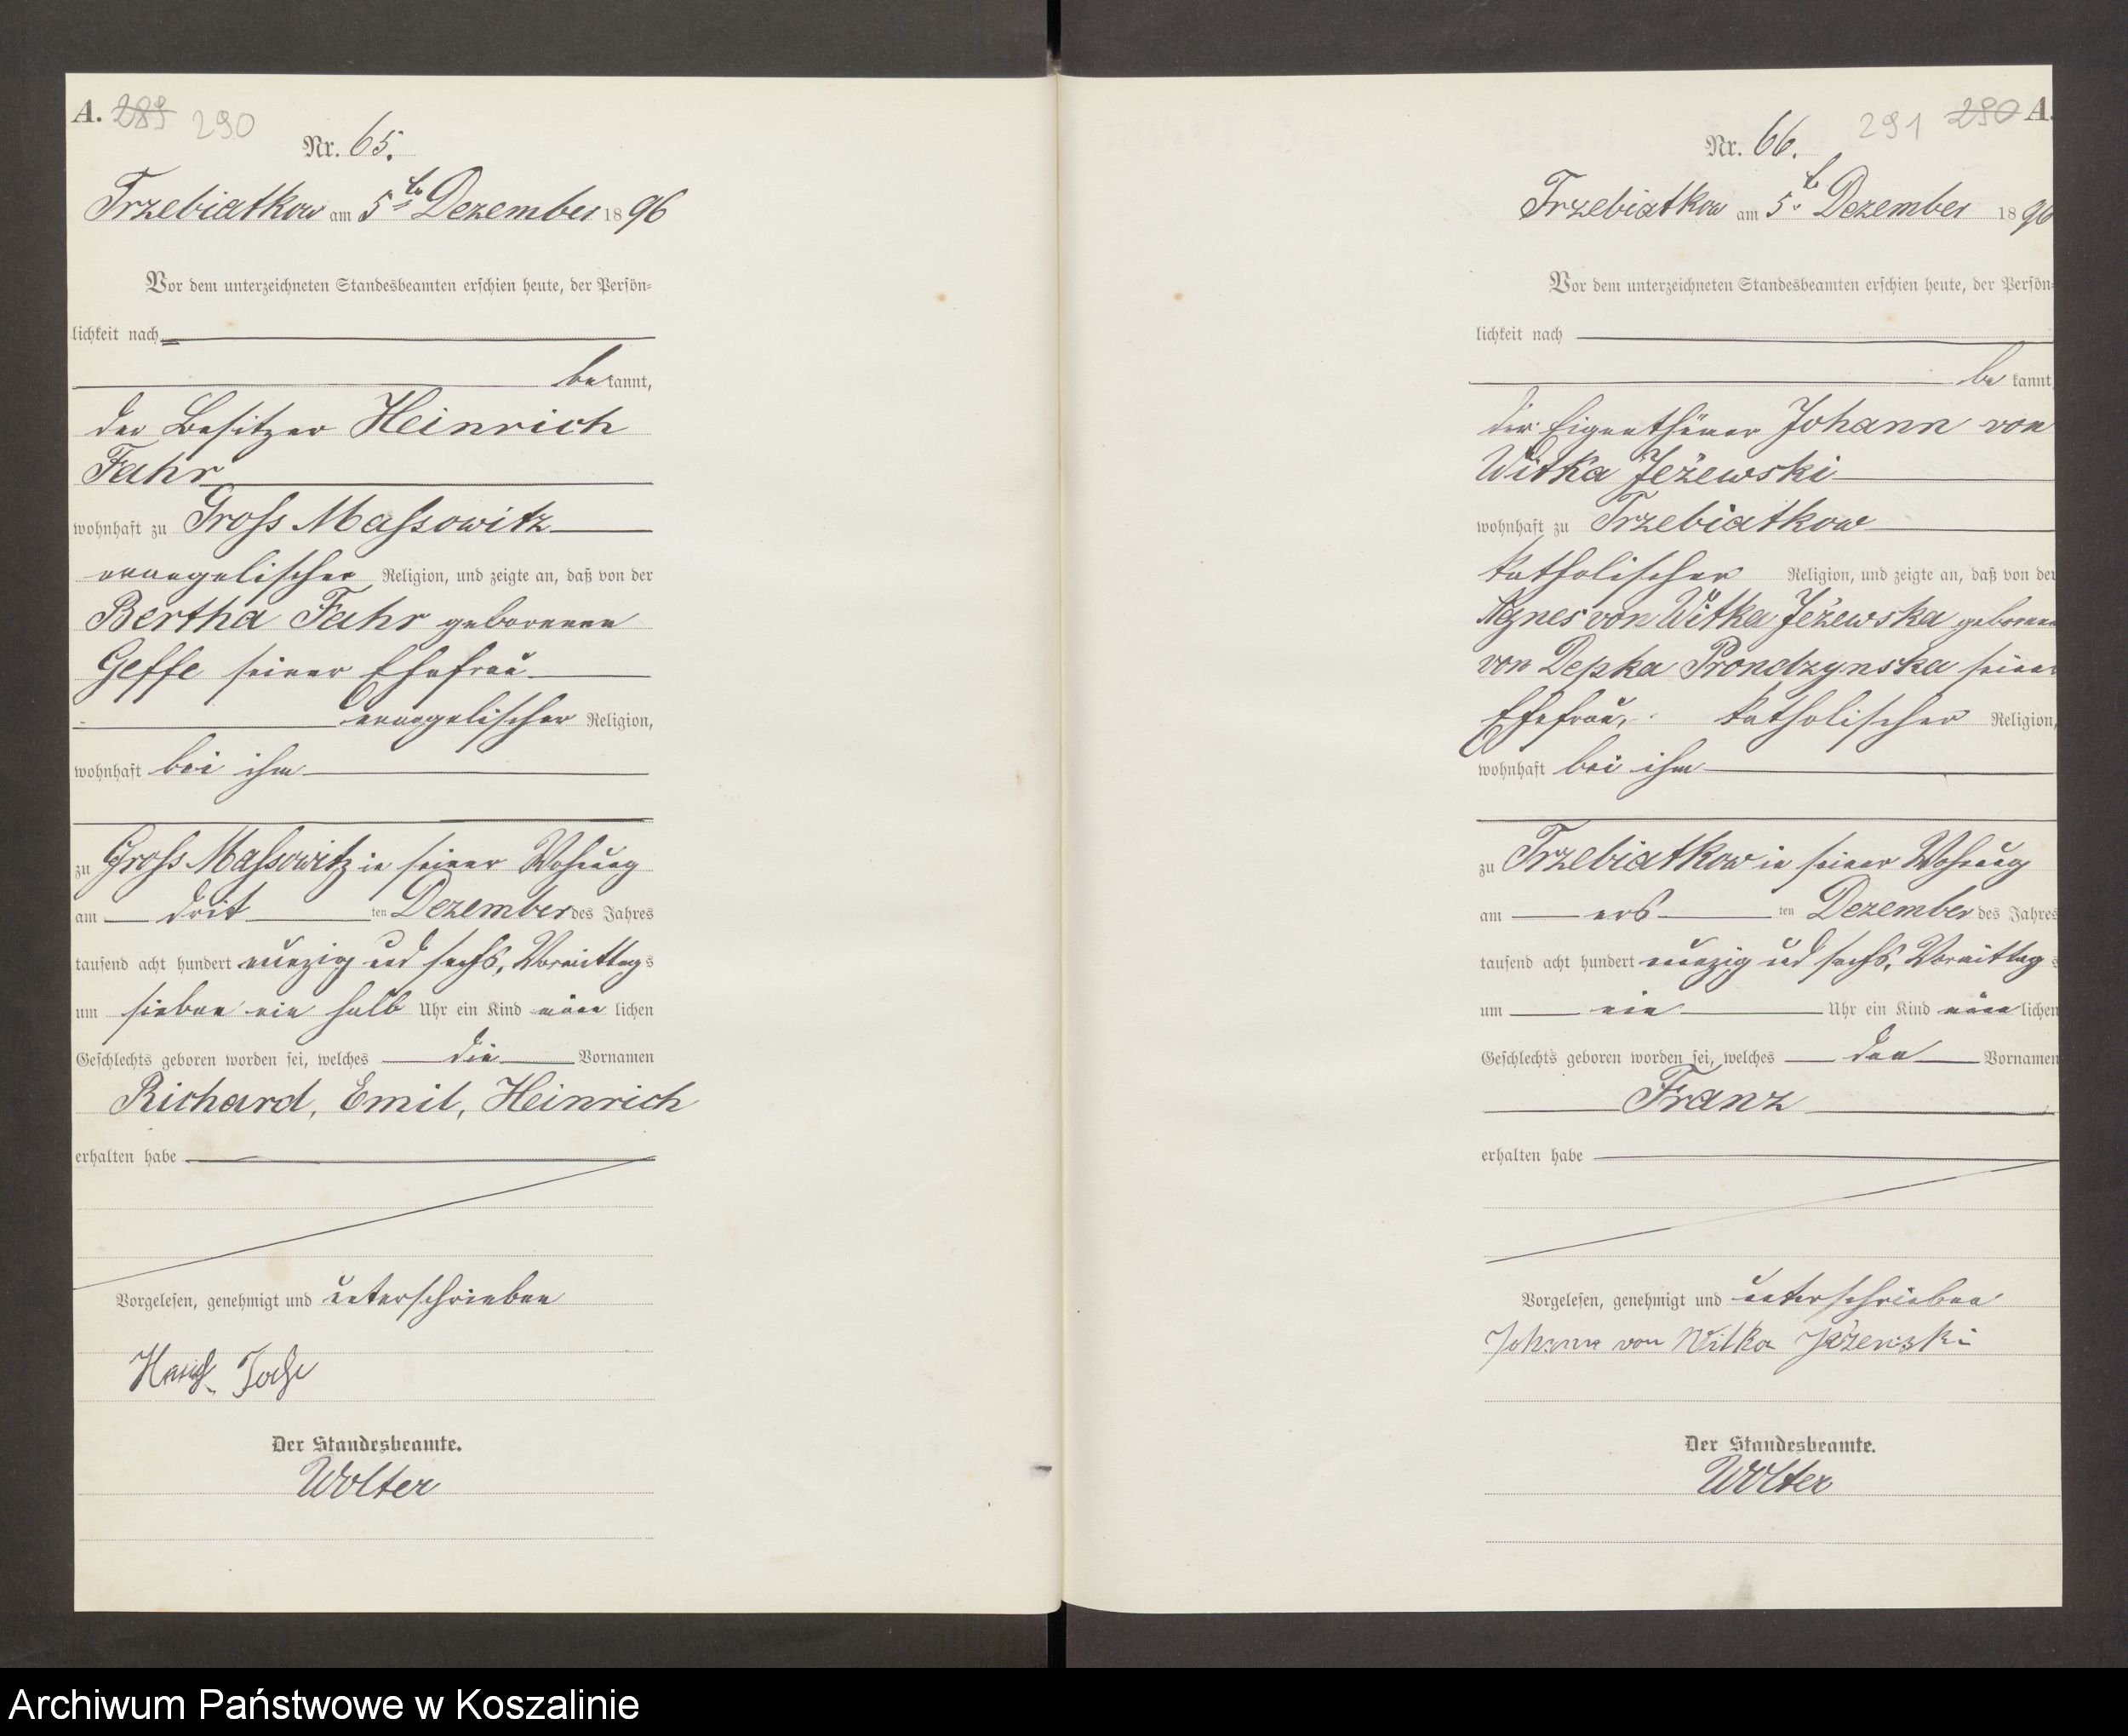 A. 289 290
Nr. 65.
Trzebiatkow am 5ten Dezember 1896
Vor dem unterzeichneten Standesbeamten erschien heute, der Persön-
lichkeit nach
bekannt,
der Besitzer Heinrich
Fahr
wohnhaft zu Gross Massowitz
evangelischer Religion, und zeigte an, daß von der
Bertha Fahr geborenen
Geffe seiner Ehefrau
evangelischer Religion,
wohnhaft bei ihm
zu Gross Massowitz in seiner Wohnung
am dritten Dezember des Jahres
tausend acht hundert neunzig und sechs, Vormittags
um sieben ein halb Uhr ein Kind männlichen
Geschlechts geboren worden sei, welches die Vornamen
Richard, Emil, Heinrich
erhalten habe
Vorgelesen, genehmigt und unterschrieben
Der Standesbeamte.
Wolter
291 290 A.
Nr. 66.
Trzebiatkow am 5ten Dezember 1896
Vor dem unterzeichneten Standesbeamten erschien heute, der Persön-
lichkeit nach
bekannt
der Eigenthümer Johann von
Witka Jeżewski
wohnhaft zu Trzebiatkow
katholischer Religion, und zeigte an, daß von der
Agnes von Witka Jeżewska geborenen
von Depka Prondzynska seiner
Ehefrau, katholischer Religion,
wohnhaft bei ihm
zu Trzebiatkow in seiner Wohnung
am ersten Dezember des Jahres
tausend acht hundert neunzig und sechs, Vormittags
um ein Uhr ein Kind männlichen
Geschlechts geboren worden sei, welches den Vornamen
Franz
erhalten habe
Vorgelesen, genehmigt und unterschrieben
Johann von Witka Jeżewski
Der Standesbeamte.
Wolter
Archiwum Państwowe w Koszalinie